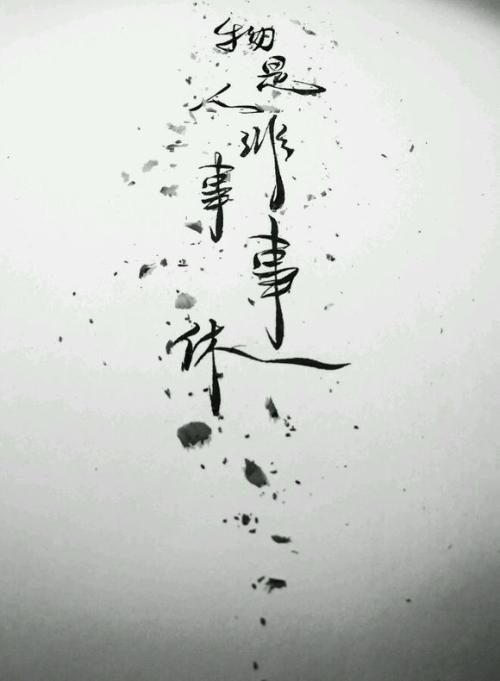 物是人非事事休